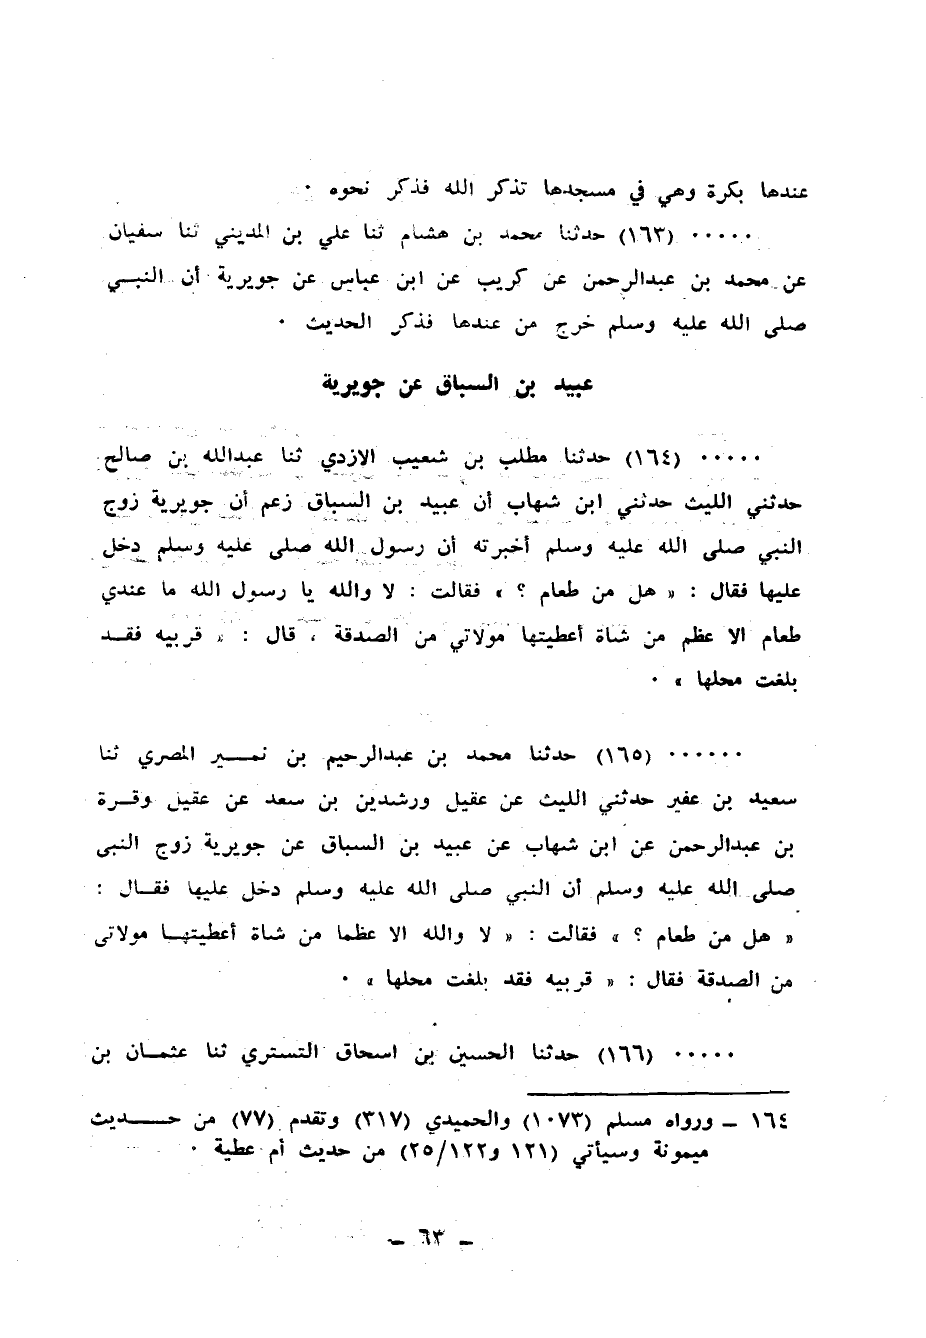 عندها بكرة وهي في مسجدها تذكر الله فذكر نحوه ٠
٠٠٠٠٠ (١٦٣) حدثنا محمد بن هشام ثنا علي بن المديني ثنا سفيان
عن محمد بن عبدالرحمن عن كريب عن ابن عباس عن جويرية أن النبـي
صلى الله عليه وسلم خرج من عندها فذكر الحديث ٠
عبيد بن السباق عن جويرية
٠٠٠٠٠ (١٦٤) حدثنا مطلب بن شعيب الازدي ثنا عبدالله بن صالح
حدثني الليث حدثني ابن شهاب أن عبيد بن السباق زعم أن جويرية زوج
النبي صلى الله عليه وسلم أخبرته أن رسول الله صلى عليه وسلم دخل
عليها فقال : « هل من طعام ؟ » فقالت : لا والله يا رسول الله ما عندي
طعام الا عظم من شاة أعطيتها مولاتي من الصدقة ، قال : « قربيه فقـد
بلغت محلها » ٠
٠٠٠٠٠٠ (١٦٥) حدثنا محمد بن عبدالرحيم بن نمـــير المصري ثنا
سعيد بن عفير حدثني الليث عن عقيل ورشدين بن سعد عن عقيل وقـرة
بن عبدالرحمن عن ابن شهاب عن عبيد بن السباق عن جويرية زوج النبى
صلى الله عليه وسلم أن النبي صلى الله عليه وسلم دخل عليها فقـال :
« هل من طعام ؟ » فقالت : « لا والله الا عظما من شاة أعطيتهـا مولاتى
من الصدقة فقال : « قربيه فقد بلغت محلها » ٠
٠٠٠٠٠ (١٦٦) حدثنا الحسين بن اسحاق التستري ثنا عثمـان بن
١٦٤ ـ ورواه مسلم (١٠٧٣) والحميدي (٣١٧) وتقدم (٧٧) من حـــديث
ميمونة وسيأتي (١٢١ و١٢٢/٢٥) من حديث أم عطية ٠
ـ ٦٣ ـ